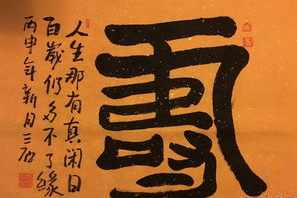 人生那有真闲日
百歲仍多不了緣
丙申年新月三石